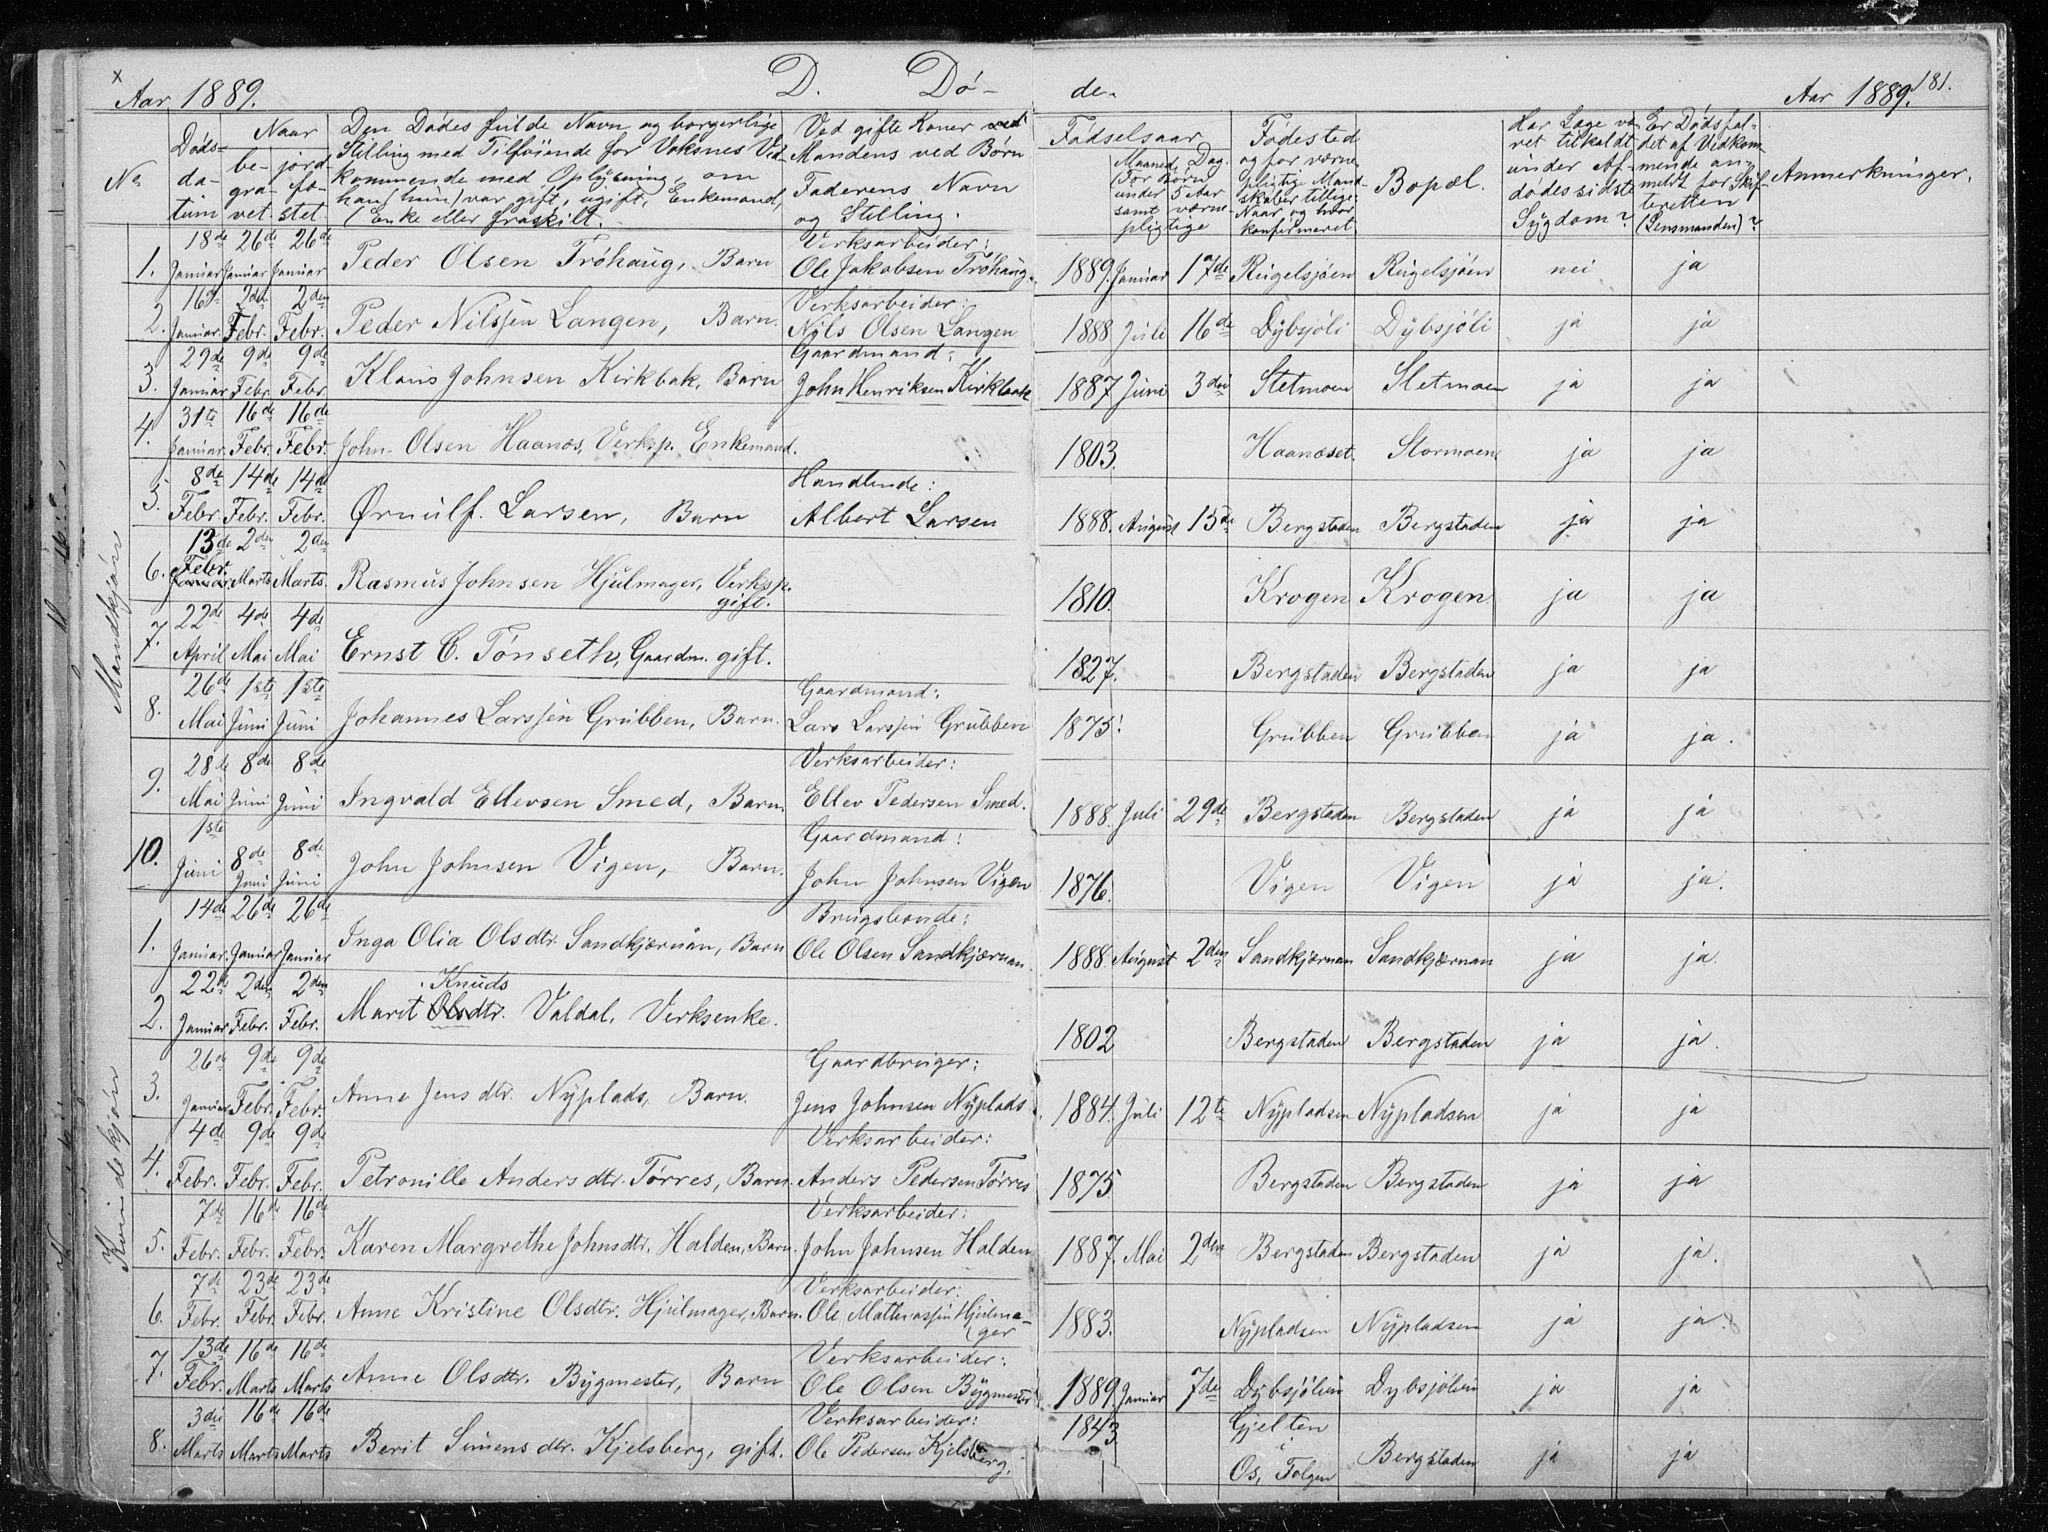 Aar 1889. D. Dö- de. Aar 1889. 181.
No
Døds-
da-
tum
Naar
be-
gra-
vet.
jord
fæ-
stet.
Den Dødes fulde Navn og borgerlige
Stilling med Tilføiende for Voksnes Ved-
kommende med Oplysning, om
han (hun) var gift, ugift, Enkemand,
(Enke eller fraskilt.
Ved gifte Koner ved
Mandens ved Børn
Faderens Navn
og Stilling.
Fødselsaar
Maaned, Dag.
(For Børn
under 5 Aar
samt værne-
pligtige
Fødested
og for værne-
pligtige Mand-
skaber tillige:
Naar og hvor
konfirmeret.
Bopæl.
Har Læge væ-
ret tilkaldt
under Af-
dødes sidste
Sygdom?
Er Dødsfal-
det af Vidkom-
mende an-
meldt for Skif-
teretten
(Lensmanden)?
Anmerkninger.
Mandkjøn
18de 26de 26de Verksarbeider:
1. Januar Januar Januar Peder Olsen Tröhaug, Barn Ole Jakobsen Tröhaug. 1889. Januar 17de Rugelsjöen Rugelsjöen nei ja
16de 2den 2den Verksarbeider:
2. Januar. Febr. Febr. Peder Nilssen Langen, Barn. Nils Olsen Langen 1888 Juli 16de Dybsjöli Dybsjöli ja ja
29de 9de 9de Gaardmand:
3. Januar Febr. Febr. Klaus Johnsen Kirkbak, Barn John Henriksen Kirkbak 1887 Juni 3die Sletmoen Sletmoen ja ja
31te 16de 16de
4. Januar. Febr. Febr. John Olsen Haanæs, Verksp. Enkemand. 1803. Haanæset. Stormoen. ja ja
8de 14de 14de Handlende:
5. Febr. Febr. Febr. Ørnulf. Larsen, Barn Albert Larsen 1888. August 15de Bergstaden Bergstaden ja ja
13de 2den 2den
Febr.
6. Januar. Marts Marts. Rasmus Johnsen Hjulmager, Verksp. 1810. Krogen Krogen. ja ja
gift.
22de 4de 4de
7. April Mai Mai Ernst C. Tönseth, Gaardm. gift. 1827. Bergstaden Bergstaden ja ja
26de 1ste 1ste Gaardmand:
8. Mai Juni Juni Johannes Larssen Grubben, Barn. Lars Larssen Grubben 1875. Grubben Grubben ja ja.
28de 8de 8de Verksarbeider:
9. Mai Juni Juni Ingvald Ellevsen Smed, Barn. Ellev Pedersen Smed. 1888. Juli 29de Bergstaden Bergstaden ja ja
1ste 8de 8de Gaardmand:
10. Juni Juni Juni John Johnsen Vigen, Barn. John Johnsen Vigen 1876. Vigen Vigen ja ja.
Kvindekjøn
14de 26de 26de Brugsbonde:
1. Januar. Januar Januar Inga Olia Olsdtr. Sandkjærnan, Barn Ole Olsen Sandkjærnan. 1888. August 2den Sandkjærnan Sandkjærnan ja ja.
22de 2den 2den Knuds
2. Januar Febr. Febr. Marit Olsdtr. Valdal, Verksenke. 1802 Bergstaden Bergstaden ja ja.
26de 9de 9de Gaardbruger:
3. Januar Febr. Febr. Anne Jensdtr. Nyplads, Barn. Jens Johnsen Nyplads. 1884. Juli 12te Nypladsen Nypladsen ja ja
4de 9de 9de Verksarbeider:
4. Febr. Febr. Febr. Petronille Andersdtr. Törres, Barn. Anders Pedersen Törres 1875. Bergstaden Bergstaden ja ja
7de 16de 16de Verksarbeider:
5. Febr. Febr. Febr. Karen Margrethe Johnsdtr. Halden, Barn. John Johnsen Halden 1887. Mai 2den Bergstaden Bergstaden ja ja.
7de 23de 23de Verksarbeider:
6. Febr. Febr. Febr. Anne Kristine Olsdtr. Hjulmager, Barn. Ole Mathiassen Hjulma- 1883. Nypladsen Nypladsen ja ja.
(ger
13de 16de 16de Verksarbeider:
7. Febr. Marts Marts Anne Olsdtr. Bygmester, Barn Ole Olsen Bygmester 1889. Januar 7de Dybsjölien Dybsjölien ja ja
3die 16de 16de Verksarbeider: 1843 Gjelten
8. Marts Marts Marts Berit Simensdtr. Kjelsberg, gift. Ole Pedersen Kjelsberg. i Bergstaden ja ja
Os, Tolgen